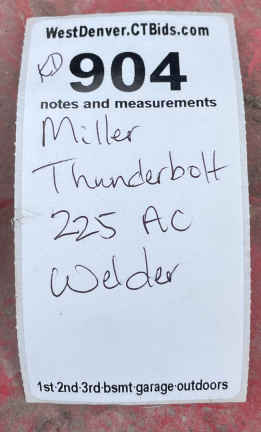 WestDenver.CTBids.com
KD 904
notes and measurements
Miller
Thunderbolt
225 AC
Welder
1st·2nd·3rd·bsmt·garage·outdoors